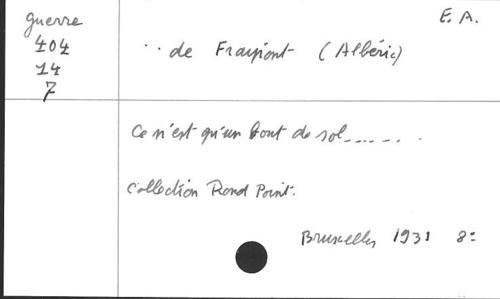 guerre
404
14
7
E. A.
.. de Fraipont (Albéric)
Ce n'est qu'un bout de sol.......
Collection Rond Point.
Bruxelles 1931 8: